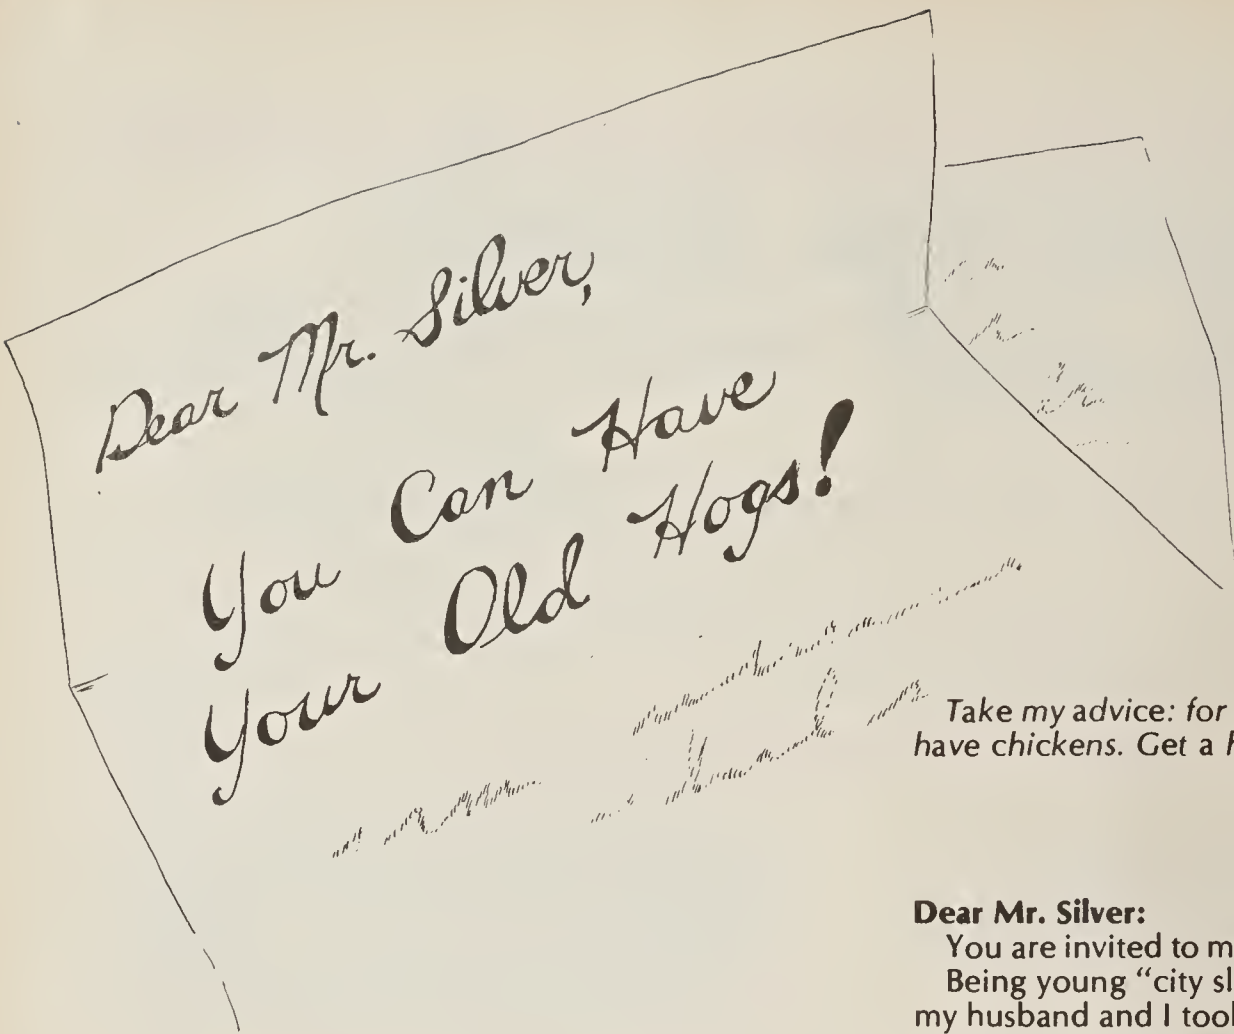 Dear Mr. Silver,
You Can Have
Your Old Hogs!
Take my advice: for
have chickens. Get a
Dear Mr. Silver:
You are invited to
Being young "city
my husband and I